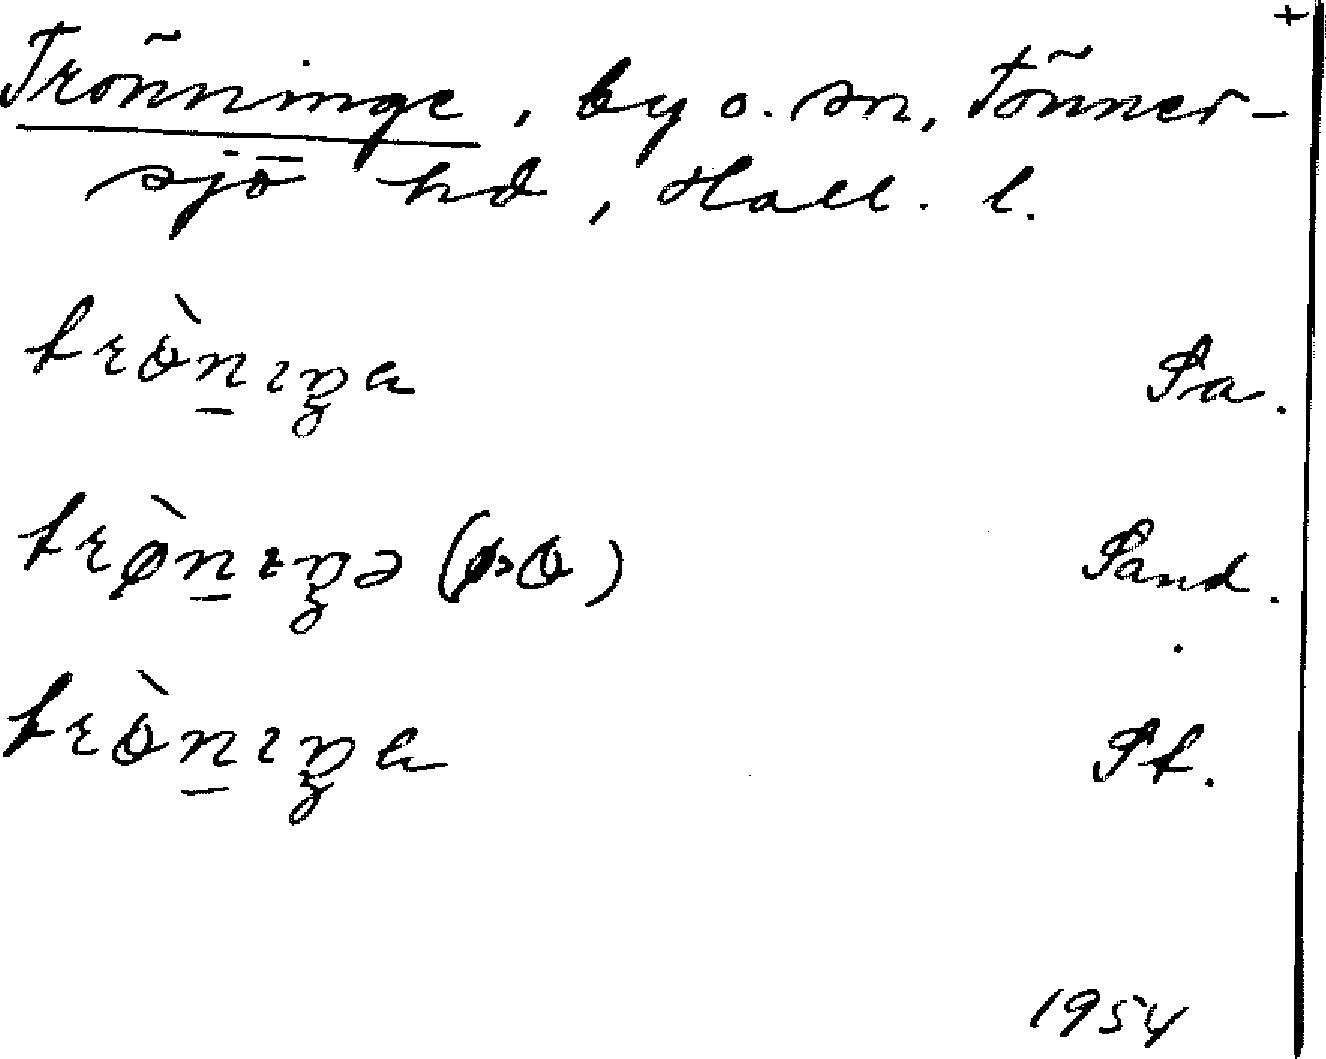 +
Trönninge, by o. sn, Tönner-
sjö hd, Hall. l.
trö̀n̲ıŋa Sa.
trø̀n̲ıŋə (ø>ö) Sand.
trö̀n̲ıŋa St.
1954